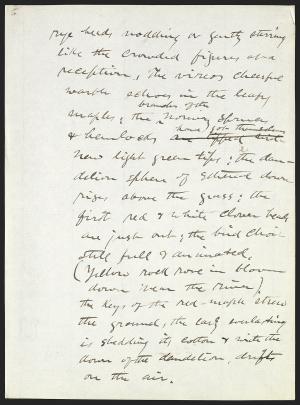 rye heads nodding or gently stirring
like the crowded figures at a
reception, the vireos cheerful
warble echoes in the leafy
branches of the
maples; the Norway spruces
have got themselves
& hemlocks are tipped with
new light green tips; the dan-
delion sphere of ethereal down
rises above the grass; the
first red & white clover heads
are just out; the bird choir
still full & animated.
(Yellow rock rose in bloom
down near the river).
the keys of the red-maple strew
the ground; the early everlasting
is shedding its cotton & with the
down of the dandelion, drifts
on the air.